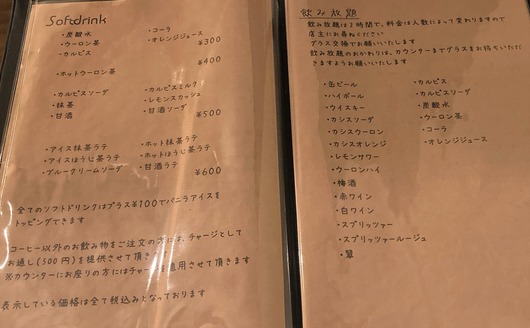 Softdrink
・炭酸水　・コーラ
・ウーロン茶　・オレンジジュース
・カルピス
¥300
・ホットウーロン茶
¥400
・カルピスソーダ　・カルピスミルク
・抹茶　・レモンスカッシュ
・甘酒　・甘酒ソーダ
¥500
・アイス抹茶ラテ　・ホット抹茶ラテ
・アイスほうじ茶ラテ　・ホットほうじ茶ラテ
・ブルークリームソーダ　・甘酒ラテ
¥600
全てのソフトドリンクはプラス¥100でバニラアイスを
トッピングできます
コーヒー以外のお飲み物をご注文の方には、チャージとして
お通し(300円)を提供させて頂き
※カウンターにお座りの方にはチャージを適用させて頂きます
表示している価格は全て税込みとなっております
飲み放題
飲み放題は2時間で、料金は人数によって変わりますので
店主にお尋ねください
グラス交換でお願いいたします
飲み放題のおかわりは、カウンターまでグラスをお持ちいただ
きますようお願いいたします
・缶ビール　・カルピス
・ハイボール　・カルピスソーダ
・ウイスキー　・炭酸水
・カシスソーダ　・ウーロン茶
・カシスウーロン　・コーラ
・カシスオレンジ　・オレンジジュース
・レモンサワー
・ウーロンハイ
・梅酒
・赤ワイン
・白ワイン
・スプリッツァー
・スプリッツァールージュ
・翠